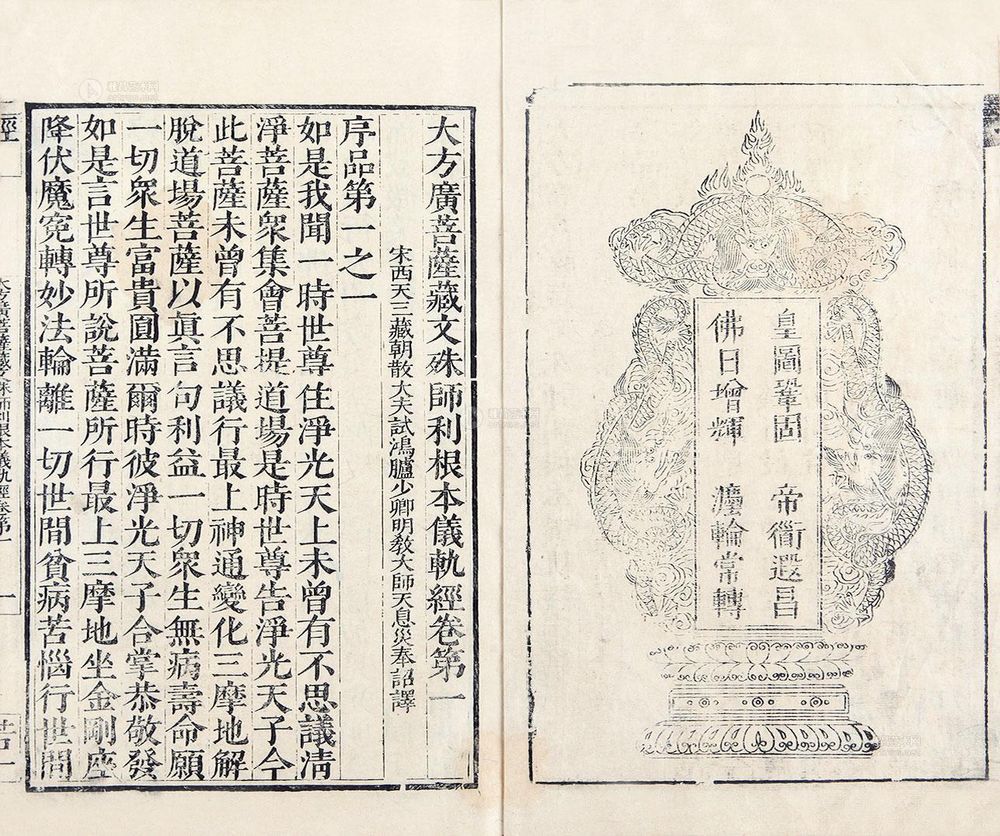 皇圖鞏固　帝衜遐昌
佛日增輝　灋輪常轉
大方廣菩薩藏文殊師利根本儀軌經卷第一
宋西天三藏朝散大夫試鴻臚少卿明教大師天息災奉詔譯
序品第一之一
如是我聞一時世尊住淨光天上未曾有不思議清
淨菩薩衆集會菩提道場是時世尊告淨光天子今
此菩薩未曾有不思議行最上神通變化三摩地解
脫道場菩薩以眞言句利益一切衆生無病壽命願
一切衆生富貴圓滿爾時彼淨光天子合掌恭敬發
如是言世尊所說菩薩所行最上三摩地坐金剛座
降伏魔冤轉妙法輪離一切世間貧病苦惱行世間
經
大方廣菩薩藏文殊師利根本儀軌經卷第一
一